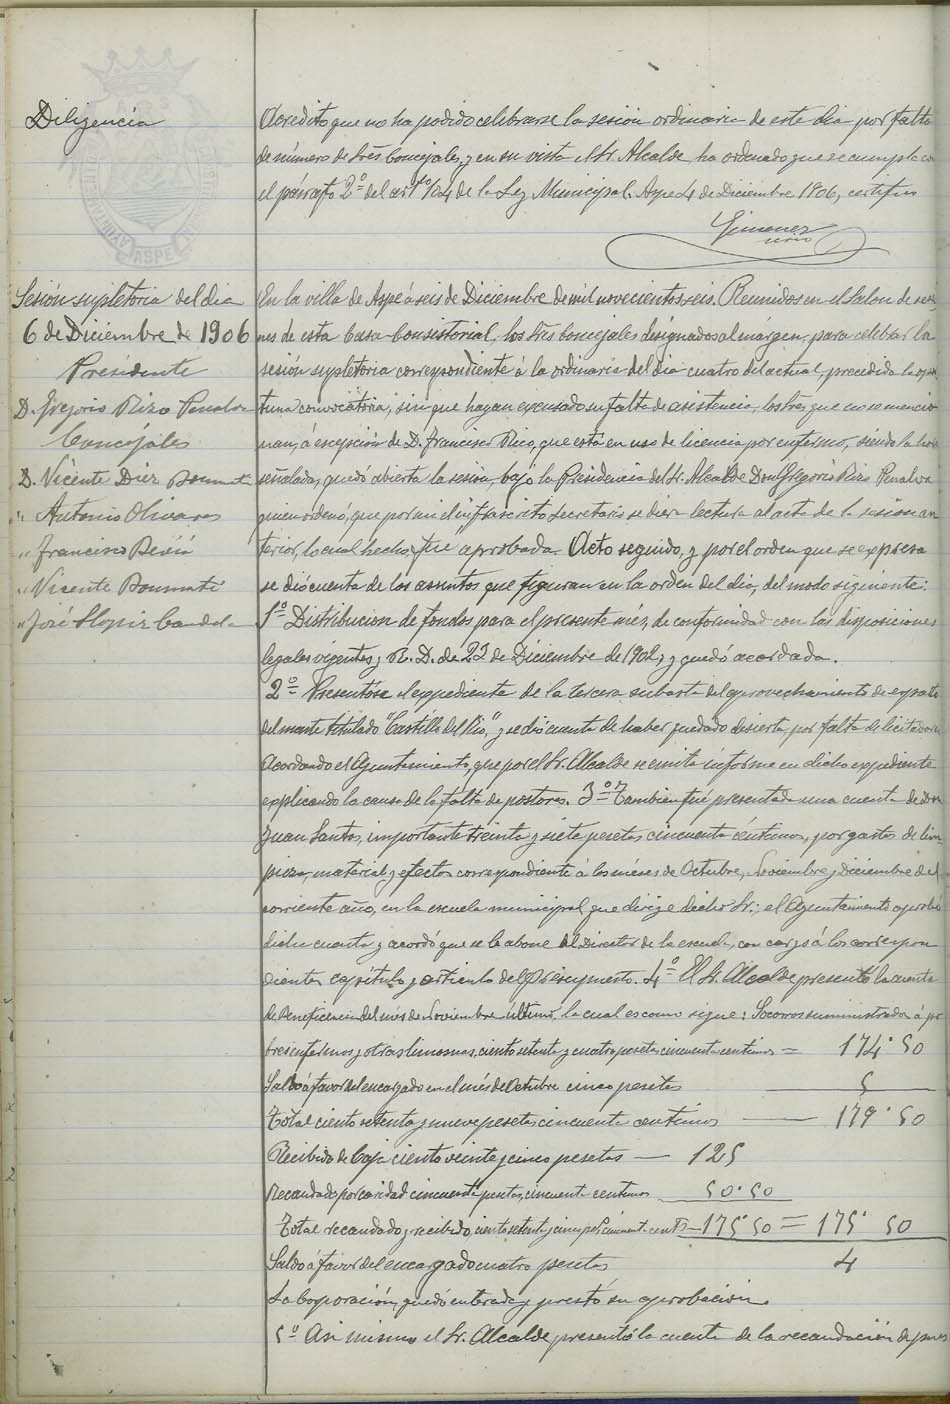 Diligencia
Acredito que no ha podido celebrarse la sesion ordinaria de este dia por falta
de número de Sres Concejales, y en su vista el Sr. Alcalde ha ordenado que se cumpla con
el párrafo 2º del artº 104 de la Ley Municipal. Aspe 4 de Diciembre 1906, certifico
Gimenez
Sesión supletoria del dia
6 de Diciembre de 1906
Presidente
D. Gregorio Rizo Penalva
Concejales
D. Vicente Diez Boumati
" Antonio Olivares
" Francisco
" Vicente Boumati
" José Llopiz Candela
En la villa de Aspe á seis de Diciembre de mil novecientos seis. Reunidos en el Salon de sesio
nes de esta Casa-Consistorial, los Sres Concejales designados al márgen, para celebrar la
sesión supletoria correspondiente á la ordinaria del dia cuatro del actual, precedida la opor
tuna convocatoria, sin que hayan escusado su falta de asistencia, los Sres que no se mencio
nan, á escepción de D. Francisco Rico, que está en uso de licencia por enfermo, siendo la hora
señalada, quedó abierta la sesión, bajo la Presidencia del Sr. Alcalde Don Gregorio Rizo Penalva
quien ordenó, que por mi el infrascrito Secretario se diera lectura al acta de la sesion an
terior, lo cual hecho, fue aprobada. Acto seguido, y por el orden que se expresa
se dió cuenta de los asuntos que figuran en la orden del dia, del modo siguiente:
1º Distribucion de fondos para el presente mes, de conformidad con las disposiciones
legales vigentes y R. D. de 23 de Diciembre de 1902, y quedó acordada.
2º Presentóse el expediente de la tercera subasta del aprovechamiento de esparto
del monte titulado "Castillo del Rio", y se dió cuenta de haber quedado desierta, por falta de licitadores
acordando el Ayuntamiento, que por el Sr. Alcalde se emita informe en dicho expediente
esplicando la causa de la falta de postores. 3º Tambien fué presentada una cuenta de Don
Juan Santos, importante treinta y siete pesetas cincuenta céntimos, por gastos de lim
pieza, material y efectos correspondiente á los méses de Octubre, Noviembre y Diciembre del
corriente año, en la escuela municipal que dirige dicho Sr.; el Ayuntamiento aprobó
dicha cuenta y acordó que se le abone al Director de la escuela, con cargo á los correspon
dientes capitulo y articulo del Presupuesto. 4º El Sr. Alcalde presentó la cuenta
de Beneficencia del més de Noviembre último, la cual es como sigue: Socorros suministrados á po
bres enfermos y otras limosnas, ciento setenta y cuatro pesetas cincuenta centimos = 174'50
Saldo á favor del encargado en el més de Octubre cinco pesetas 5
Total ciento setenta y nueve pesetas cincuenta centimos 179'50
Recibido de Caja ciento veinte y cinco pesetas — 125
Recaudado por caridad cincuenta pesetas, cincuenta centimos 50'50
Total recaudado y recibido, ciento setenta y cinco pesetas cincuenta cents — 175'50 = 175'50
Saldo á favor del encargado cuatro pesetas 4
La Corporación, quedó enterada y prestó su aprobacion.
5º Asi mismo el Sr. Alcalde presentó la cuenta de la recaudación de pues